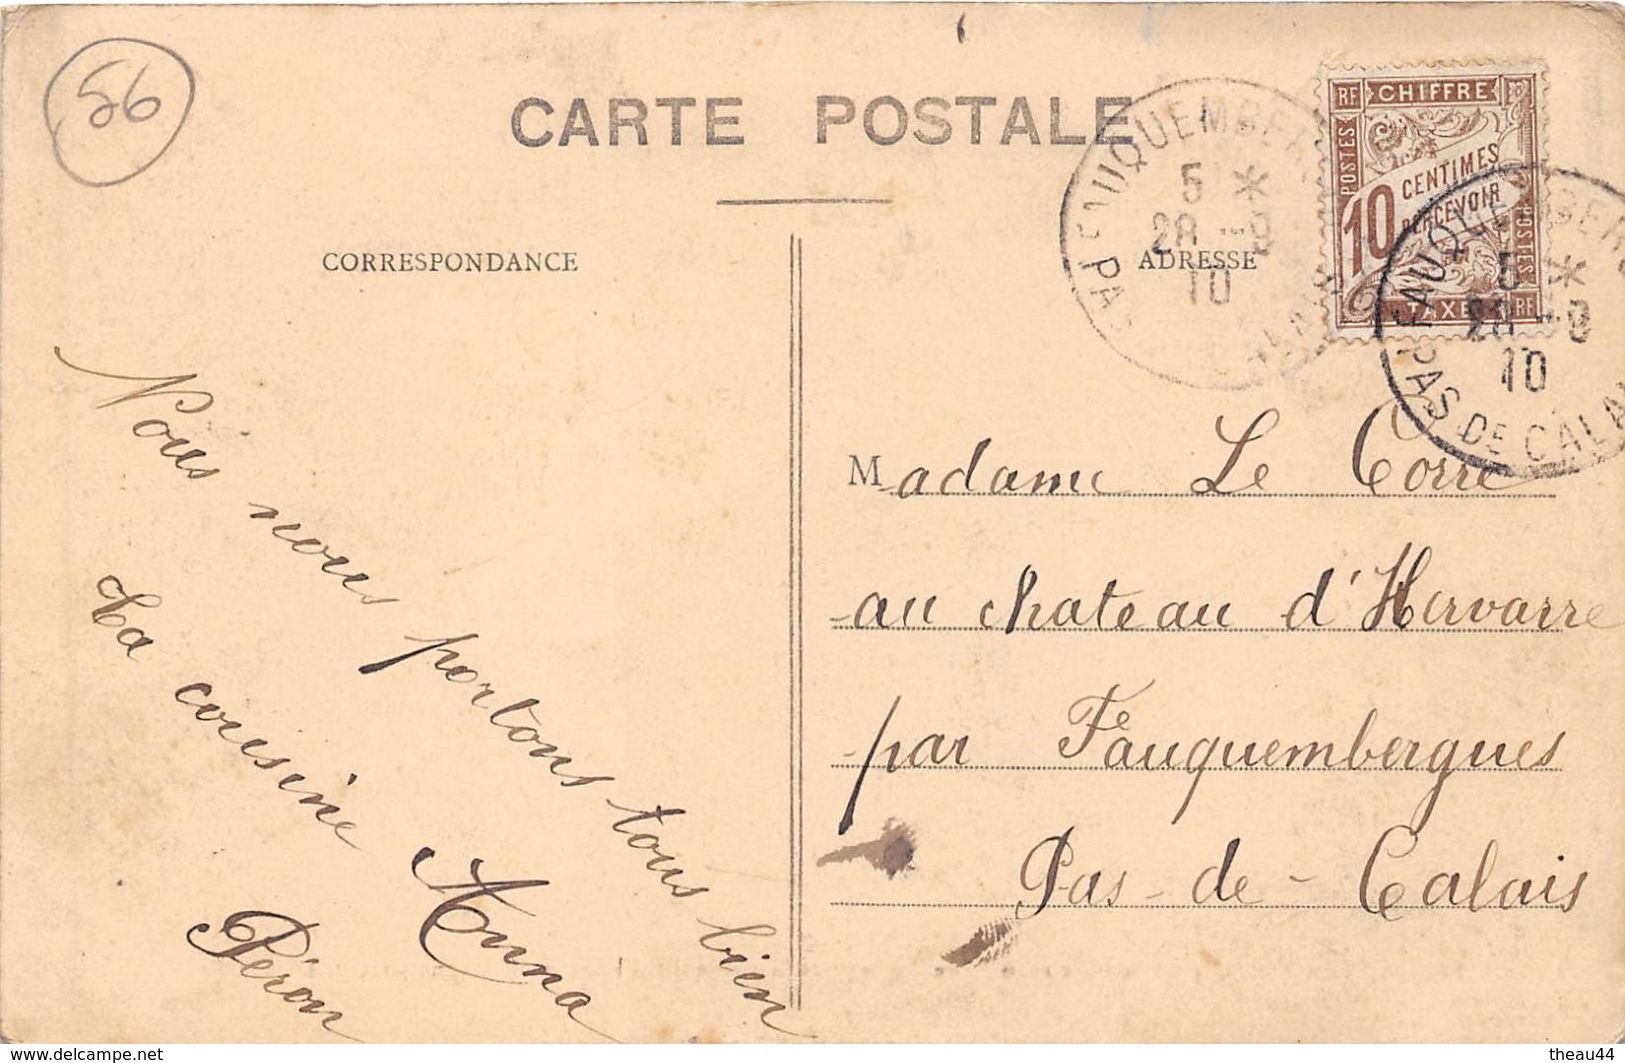 56
CARTE POSTALE
CORRESPONDANCE
ADRESSE
FAUQUEMBERG
5 *
28 - 9
10
PAS DE CALAIS
RF CHIFFRE
POSTES
10 CENTIMES
PERCEVOIR
POSTES
TAXE RF
FAUQUEMBERG
5 *
28 - 9
10
PAS DE CALA
Nous nous portons tous bien
La cousine Anna
Péron
Madame Le Corre
au chateau d'Hervarre
par Fauquembergues
Pas-de-Calais
www.delcampe.net
theau44